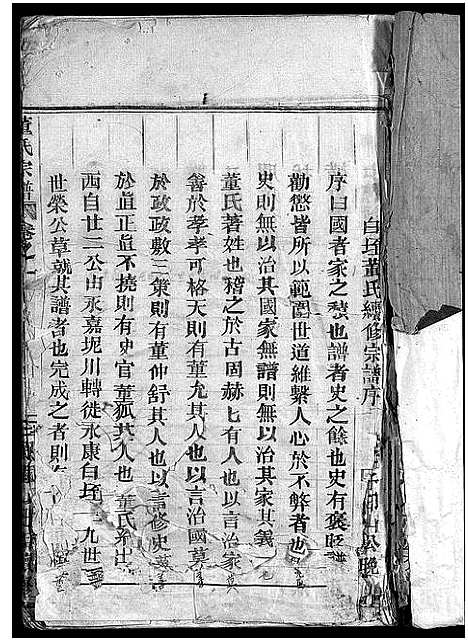 白坭董氏續修宗譜序
序曰國者家之積也譜者史之餘也史有褒貶譜
勸懲皆所以範圍世道維繫人心於不弊者也
史則無以治其國家無譜則無以治其家其義
董氏著姓也稽之於古固赫七有人也以言治家莫
善於孝孝可格天則有董允其人也以言治國莫
於政政敷三策則有董仲舒其人也以言修史莫
於直正直不撓則有史官董狐其人也 董氏系出
西自廿二公由永嘉坭川轉徙永康白坭 九世
世榮公草就其譜者也完成之者則
董氏宗譜